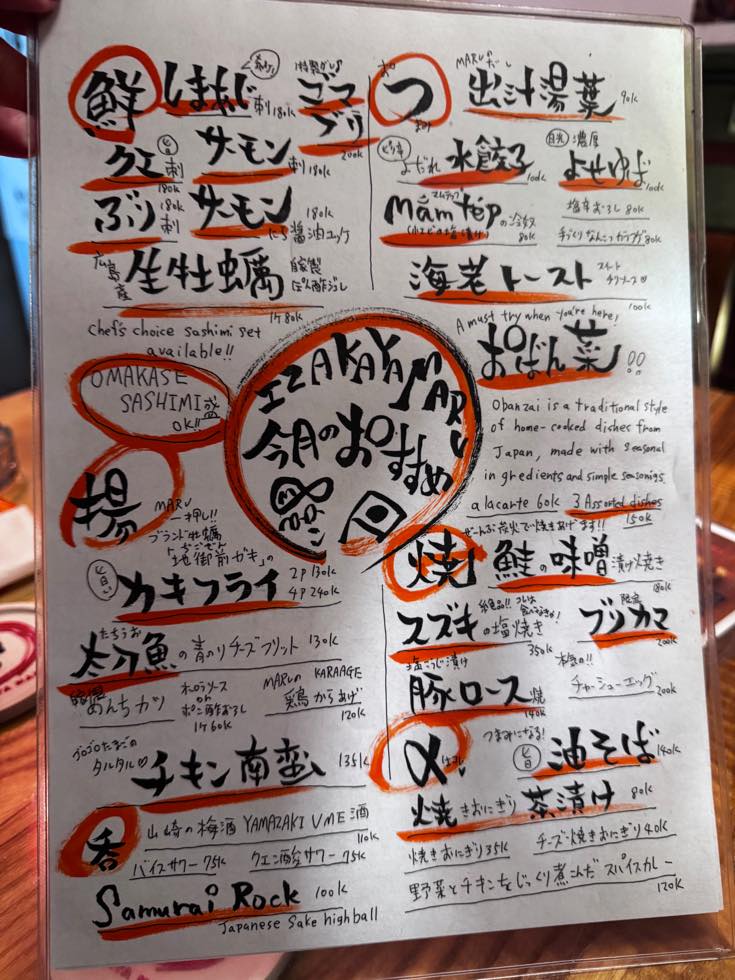 鮮
しまあじ刺 180k
特製ダレ
ゴマブリ 200k
旨 クエ刺 180k
サーモン刺 180k
ぶり刺 180k
サーモン 180k
にら醤油ユッケ
広島産 生牡蠣 自家製ぽん酢ジュレ
1ケ 80k
Chef's choice sashimi set
available!!
OMAKASE
SASHIMI盛
OK!!
おつまみ
MARUだし
出汁湯葉 90k
ピリ辛 よだれ水餃子 100k
濃厚 よせゆば 100k
マムテップ
Mắm tépの冷奴
80k
塩辛おろし 80k
手づくりなんこつ 80k
海老トースト スイートチリソース♡
100k
A must try when you're here!
おばん菜!!
Obanzai is a traditional style
of home-cooked dishes from
Japan, made with seasonal
ingredients and simple seasonings
a la carte 60k 3 Assorted dishes
150k
IZAKAYA MARU
今月のおすすめ
揚
MARU一押し!!
ブランド牡蠣
「地御前ガキ」の
旨い カキフライ 2P 130k
4P 240k
たちうお
太刀魚の青のりチーズフリット 130k
めんちカツ
オーロラソース
or
ポン酢おろし
1ケ 60k
MARUの KARAAGE
鶏からあげ
120k
ゴロゴロたまごの
タルタル♡
チキン南蛮 135k
呑
山崎の梅酒 YAMAZAKI UME酒
110k
バイスサワー 75k クエン酸サワー 75k
Samurai Rock 100k
Japanese Sake highball
ぜんぶ炭火で焼きあげます!!
焼
鮭の味噌漬け焼き
180k
絶品!! コレは食べなきゃ!
スズキの塩焼き
350k
限定
ブリカマ
200k
塩こうじ漬け
豚ロース焼
140k
本気の!!
チャーシューエッグ
200k
〆
つまみになる!
旨 油そば 140k
焼きおにぎり茶漬け 80k
焼きおにぎり 35k チーズ焼きおにぎり 40k
野菜とチキンをじっくり煮こんだ スパイスカレー
120k